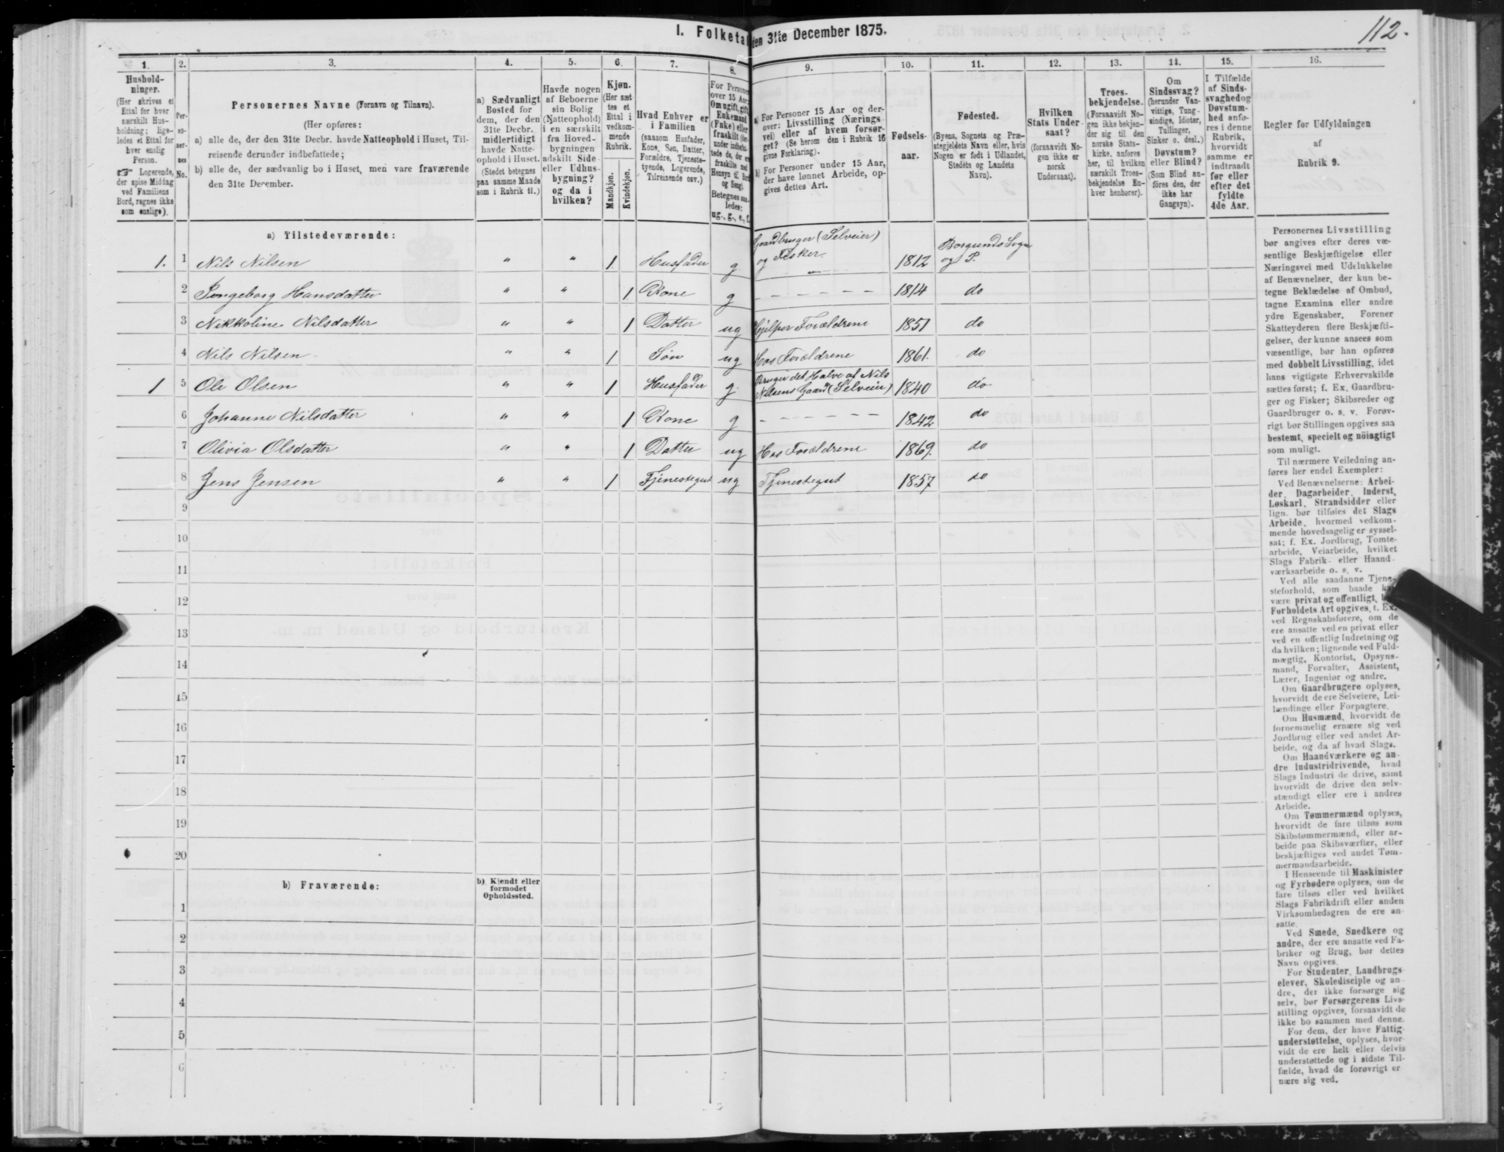 I. Folketa
den 31te December 1875.
112.
1.
2.
3.
4.
5.
6.
7.
8.
9.
10.
11.
12.
13.
14.
15.
16.
Hushold-
ninger.
(Her skrives et
Ettal for hver
særskilt Hus-
holdning; lige-
ledes et Ettal for
hver enslig
Person.
☞ Logerende,
der spise Middag
ved Familiens
Bord, regnes ikke
som enslige).
Per-
so-
ner-
nes
No.
Personernes Navne (Fornavn og Tilnavn).
(Her opføres:
a) alle de, der den 31te Decbr. havde Natteophold i Huset, Til-
reisende derunder indbefattede;
b) alle de, der sædvanlig bo i Huset, men vare fraværende
den 31te December.
a) Sædvanligt
Bosted for
dem, der den
31te Decbr.
midlertidigt
havde Natte-
ophold i Huset.
(Stedet betegnes
paa samme Maade
som i Rubrik 11.)
Havde nogen
af Beboerne
sin Bolig
(Natteophold)
i en særskilt
fra Hoved-
bygningen
adskilt Side-
eller Udhus-
bygning?
og da i
hvilken?
Kjøn.
(Her sæt-
tes et
Ettal i
vedkom-
mende
Rubrik.
Mandkjøn.
Kvindekjøn.
Hvad Enhver er
i Familien
(saasom Husfader,
Kone, Søn, Datter,
Forældre, Tjeneste-
tyende, Logerende,
Tilreisende osv.)
For Personer
over 15 Aar:
Om ugift, gift,
Enkemand
(Enke) eller
fraskilt
Betegnes saa-
ledes:
ug., g., e., f.
a) For Personer 15 Aar og der-
over: Livsstilling (Nærings-
vei) eller af hvem forsør-
get? (Se herom den i Rubrik 16
givne Forklaring).
b) For Personer under 15 Aar,
der have lønnet Arbeide, op-
gives dettes Art.
Fødsels-
aar.
Fødested.
(Byens, Sognets og Præ-
stegjeldets Navn eller, hvis
Nogen er født i Udlandet,
Stedets og Landets
Navn).
Hvilken
Stats Under-
saat?
(forsaavidt No-
gen ikke er
norsk
Undersaat).
Troes-
bekjendelse.
(Forsaavidt No-
gen ikke bekjen-
der sig til den
norske Stats-
kirke, anføres
her, til hvilken
særskilt Troes-
bekjendelse En-
hver henhører).
Om
Sindssvag?
(herunder Van-
vittige, Tung-
sindige, Idioter,
Tullinger,
Sinker o. desl.)
Døvstum?
eller Blind?
(Som Blind an-
føres den, der
ikke har
Gangsyn).
I Tilfælde
af Sinds-
svaghed og
Døvstum-
hed anfø-
res i denne
Rubrik,
hvorvidt
samme er
indtraadt
før eller
efter det
fyldte
4de Aar.
Regler for Udfyldningen
af
Rubrik 9.
a) Tilstedeværende:
1. 1 Nils Nilsen " " 1 Husfader g Gaardbruger (Selveier) og Fisker. 1812 Borgunds Sogn og P.
2 Ingeborg Hansdatter " " 1 Kone g – – – – – – 1814 do
3 Nikkoline Nilsdatter " " 1 Datter ug Hjelper Forældrene 1851 do
4 Nils Nilsen " " 1 Søn ug Hos Forældrene 1861. do
1 5 Ole Olsen " " 1 Husfader g. Bruger det Halve af Nils Nilsens Gaard (Selveier) 1840 do
6 Johanne Nilsdatter " " 1 Kone g – – – – – – 1842 do
7 Olivia Olsdatter " " 1 Datter ug Hos Forældrene 1869. do
8 Jens Jensen " " 1 Tjenestegut ug Tjenestegut 1857 do
9
10
11
12
13
14
15
16
17
18
19
20
b) Fraværende:
b) Kjendt eller
formodet
Opholdssted.
1
2
3
4
5
6
Personernes Livsstilling
bør angives efter deres væ-
sentlige Beskjæftigelse eller
Næringsvei med Udelukkelse
af Benævnelser, der kun be-
tegne Beklædelse af Ombud,
tagne Examina eller andre
ydre Egenskaber. Forener
Skatteyderen flere Beskjæfti-
gelser, der kunne ansees som
væsentlige, bør han opføres
med dobbelt Livsstilling, idet
hans vigtigste Erhvervskilde
sættes først; f. Ex. Gaardbru-
ger og Fisker; Skibsreder og
Gaardbruger o. s. v. Forøv-
rigt bør Stillingen opgives saa
bestemt, specielt og nøiagtigt
som muligt.
Til nærmere Veiledning an-
føres her endel Exempler:
Ved Benævnelserne: Arbei-
der, Dagarbeider, Inderst,
Løskarl, Strandsidder eller
lign. bør tilføies det Slags
Arbeide, hvormed vedkom-
mende hovedsagelig er syssel-
sat; f. Ex. Jordbrug, Tomte-
arbeide, Veiarbeide, hvilket
Slags Fabrik- eller Haand-
værksarbeide o. s. v.
Ved alle saadanne Tjene-
steforhold, som baade kan
være privat og offentligt, bør
Forholdets Art opgives, f. Ex.
ved Regnskabsførere, om de
ere ansatte ved en privat eller
ved en offentlig Indretning og
da hvilken; lignende ved Fuld-
mægtig, Kontorist, Opsyns-
mand, Forvalter, Assistent,
Lærer, Ingeniør og andre.
Om Gaardbrugere oplyses,
hvorvidt de ere Selveiere, Lei-
lændinge eller Forpagtere.
Om Husmænd, hvorvidt de
fornemmelig ernære sig ved
Jordbrug eller ved andet Ar-
beide, og da af hvad Slags.
Om Haandværkere og an-
dre Industridrivende, hvad
Slags Industri de drive, samt
hvorvidt de drive den selv-
stændigt eller ere i andres
Arbeide.
Om Tømmermænd oplyses,
hvorvidt de fare tilsøs som
Skibstømmermænd, eller ar-
beide paa Skibsværfter, eller
beskjæftiges ved andet Tøm-
mermandsarbeide.
I Henseende til Maskinister
og Fyrbødere oplyses, om de
fare tilsøs eller ved hvilket
Slags Fabrikdrift eller anden
Virksomhedsgren de ere an-
satte.
Ved Smede, Snedkere og
andre, der ere ansatte ved Fa-
briker og Brug, bør dettes
Navn opgives.
For Studenter, Landbrugs-
elever, Skoledisciple og an-
dre, der ikke forsørge sig
selv, bør Forsørgerens Livs-
stilling opgives, forsaavidt de
ikke bo sammen med denne.
For dem, der have Fattig-
understøttelse, oplyses, hvor-
vidt de ere helt eller delvis
understøttede og i sidste Til-
fælde, hvad de forøvrigt er
nære sig ved.